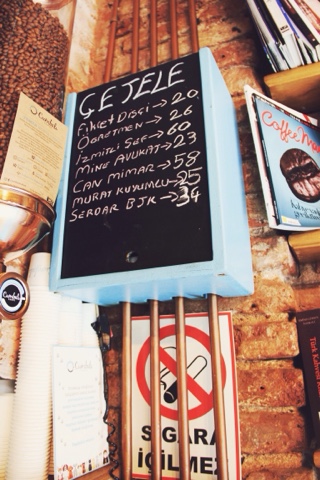 ÇETELE
Fikret Dişçi → 20
Öğretmen → 26
İzmitli Sef → 60
Mine Avukat → 23
Can Mimar → 58
Murat Kuyumcu → 25
Serdar BJK → 34
Coffee Ma
SİGARA
İÇİLMEZ
Türk Kahves